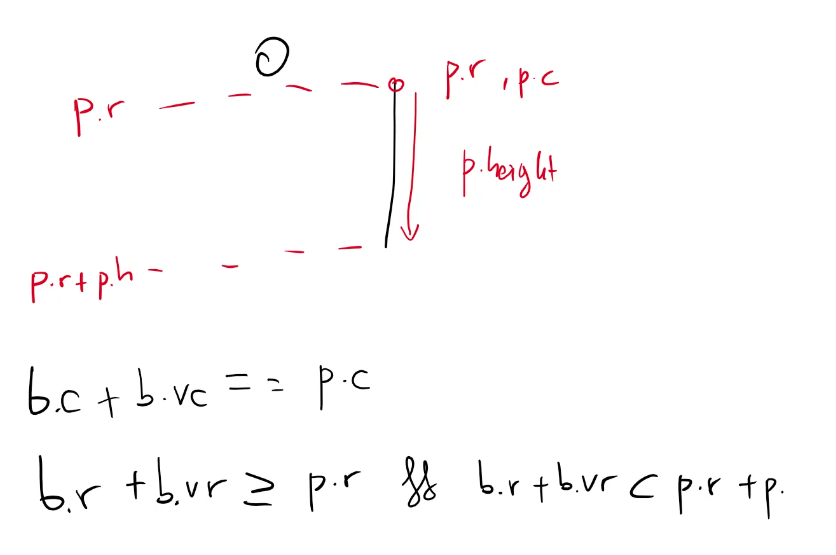 p.r
p.r , p.c
p.height
p.r + p.h
b.c + b.vc == p.c
b.r + b.vr ≥ p.r && b.r + b.vr < p.r + p.